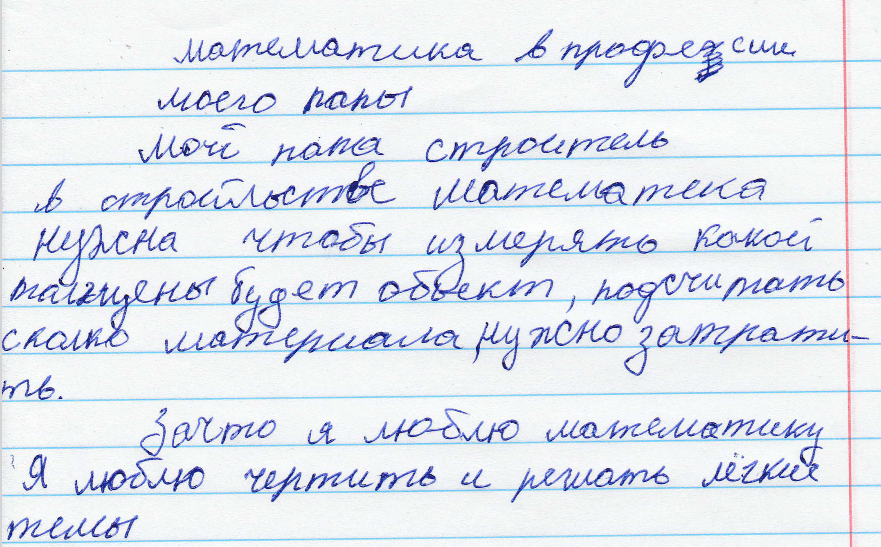 математика в професии
моего папы
Мой папа строитель
в стройльстве математека
нужна чтобы измерять какой
талжены будет объект, подсчитать
сколко материала, нужно затрати-
ть.
Зачто я люблю математику
Я люблю чертить и решать лёгкие
темы